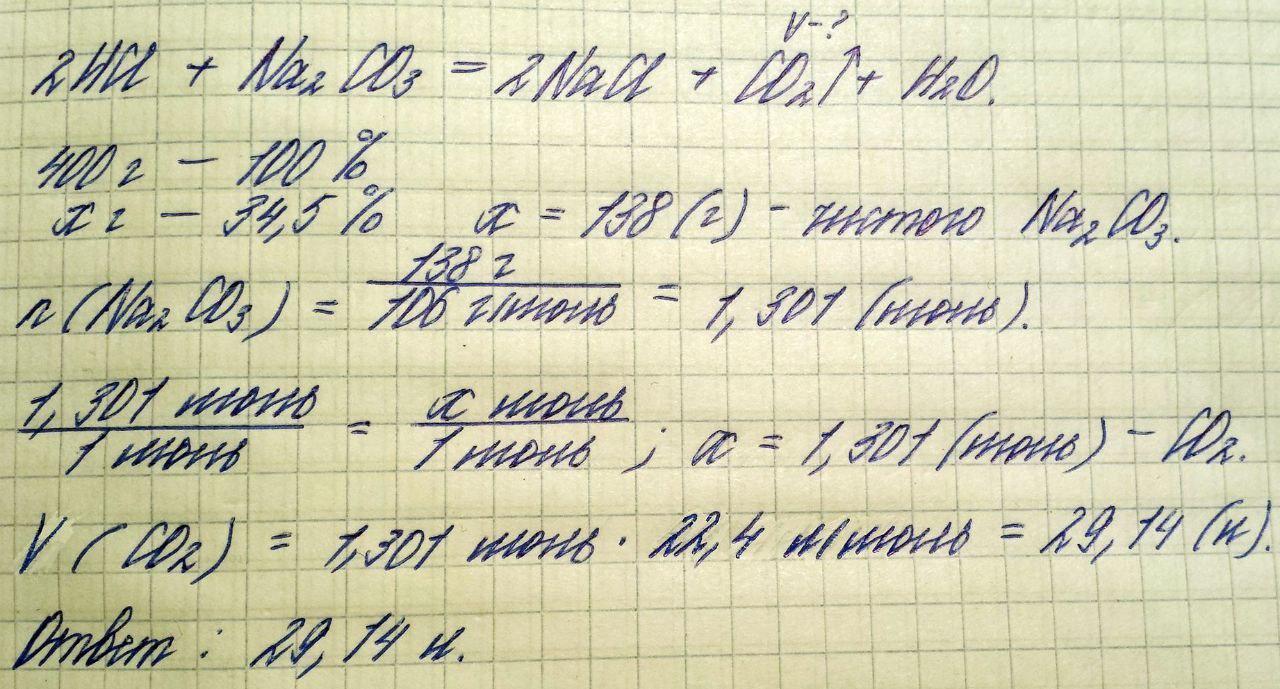 V-?
2HCl + Na₂CO₃ = 2NaCl + CO₂↑ + H₂O.
400 г — 100 %
x г — 34,5 % x = 138 (г) - чистого Na₂CO₃.
n (Na₂CO₃) = 138 г / 106 г/моль = 1,301 (моль).
1,301 моль / 1 моль = x моль / 1 моль ; x = 1,301 (моль) - CO₂.
V (CO₂) = 1,301 моль · 22,4 л/моль = 29,14 (л).
Ответ : 29,14 л.